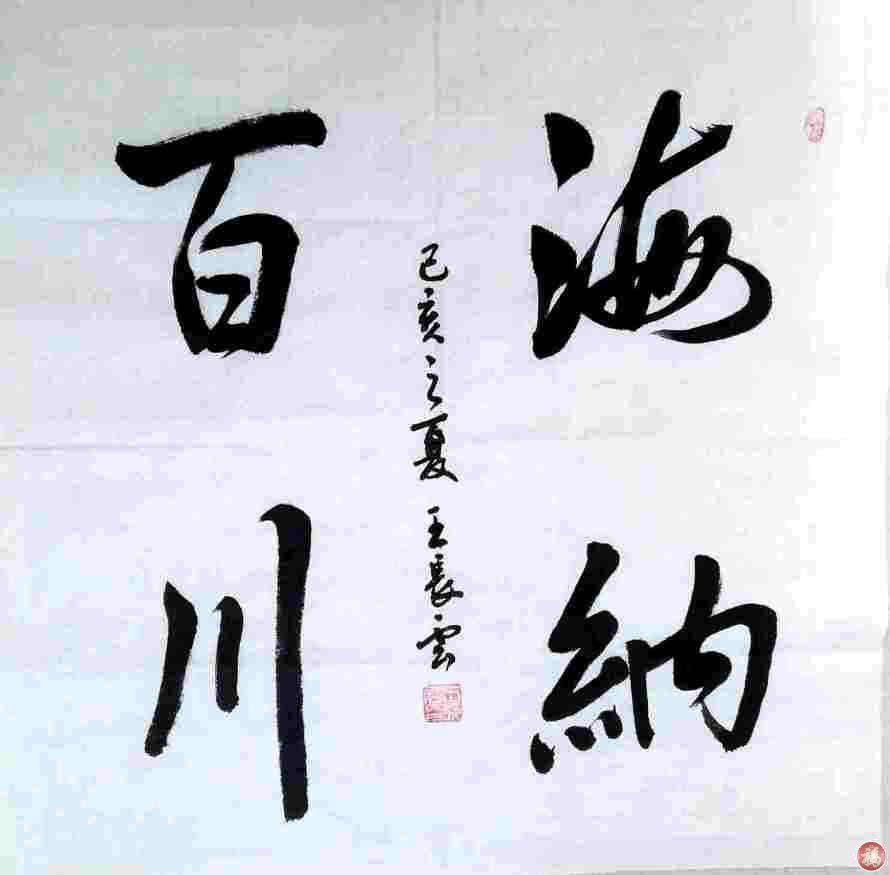 海納
百川
己亥之夏 王長雲
福